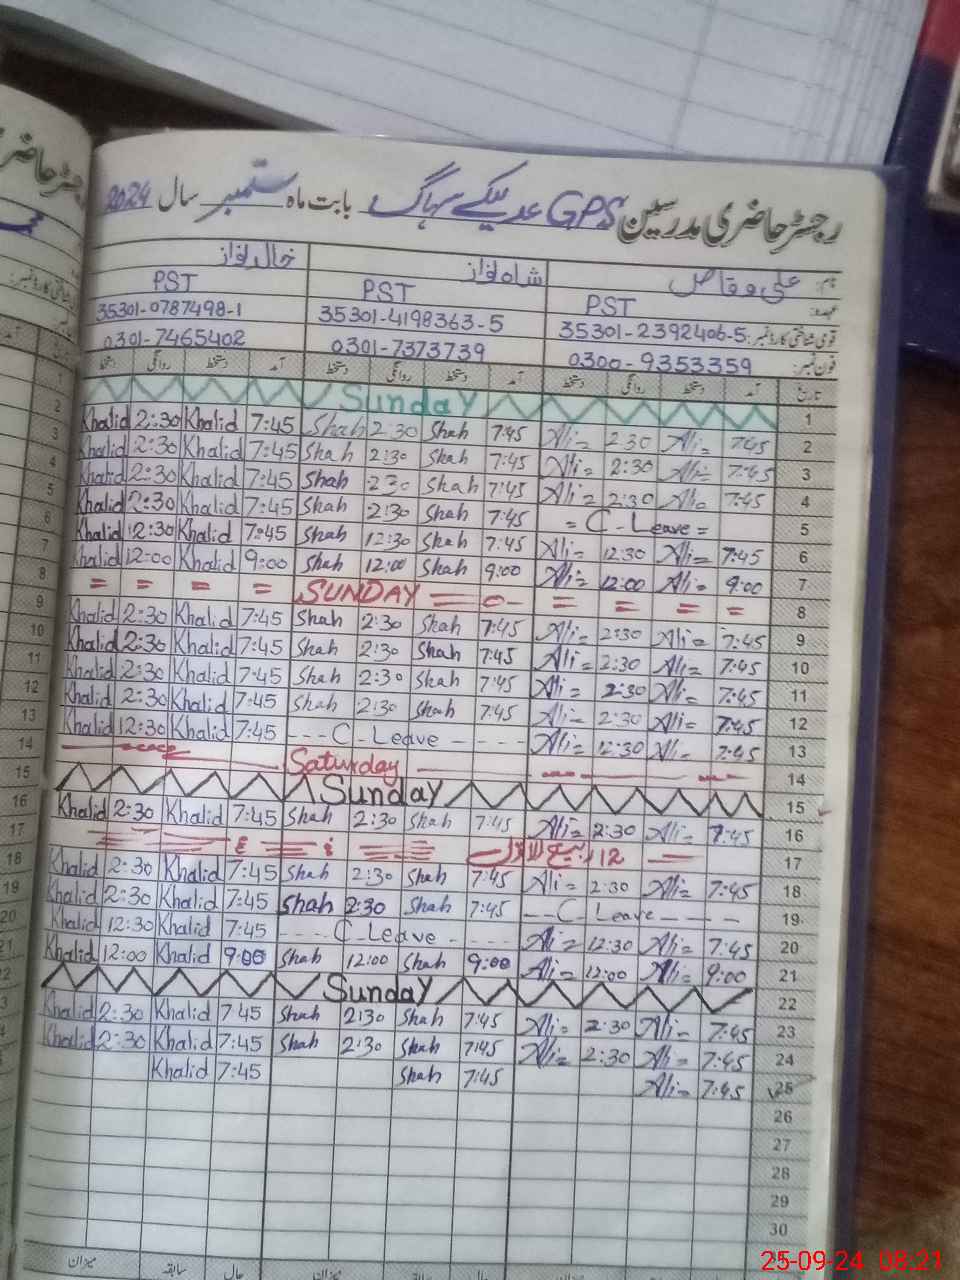 رجسٹر حاضری مدرسین GPS عدیکے سہاگ بابت ماہ ستمبر سال 2024
نام: علی وقاص شاہ نواز خالد نواز
عہدہ: PST PST PST
قومی شناختی کارڈ نمبر: 35301-2392406-5 35301-4198363-5 35301-0787498-1
فون نمبر: 0300-9353359 0301-7373739 0301-7465402
تاریخ آمد دستخط روانگی دستخط آمد دستخط روانگی دستخط آمد دستخط روانگی دستخط
Sunday 1
Khalid 2:30 Khalid 7:45 Shah 2:30 Shah 7:45 Ali 2:30 Ali 7:45 2
Khalid 2:30 Khalid 7:45 Shah 2:30 Shah 7:45 Ali 2:30 Ali 7:45 3
Khalid 2:30 Khalid 7:45 Shah 2:30 Shah 7:45 Ali 2:30 Ali 7:45 4
Khalid 2:30 Khalid 7:45 Shah 2:30 Shah 7:45 = C-Leave = 5
Khalid 12:30 Khalid 7:45 Shah 12:30 Shah 7:45 Ali 12:30 Ali 7:45 6
Khalid 12:00 Khalid 9:00 Shah 12:00 Shah 9:00 Ali 12:00 Ali 9:00 7
= = = = SUNDAY = = = = = 8
Khalid 2:30 Khalid 7:45 Shah 2:30 Shah 7:45 Ali 2:30 Ali 7:45 9
Khalid 2:30 Khalid 7:45 Shah 2:30 Shah 7:45 Ali 2:30 Ali 7:45 10
Khalid 2:30 Khalid 7:45 Shah 2:30 Shah 7:45 Ali 2:30 Ali 7:45 11
Khalid 2:30 Khalid 7:45 Shah 2:30 Shah 7:45 Ali 2:30 Ali 7:45 12
Khalid 12:30 Khalid 7:45 ---C-Leave---- Ali 12:30 Ali 7:45 13
Saturday 14
Sunday 15
Khalid 2:30 Khalid 7:45 Shah 2:30 Shah 7:45 Ali 2:30 Ali 7:45 16
12 ربیع الاول 17
Khalid 2:30 Khalid 7:45 Shah 2:30 Shah 7:45 Ali 2:30 Ali 7:45 18
Khalid 2:30 Khalid 7:45 Shah 2:30 Shah 7:45 --C-Leave--- 19
Khalid 12:30 Khalid 7:45 ----C-Leave---- Ali 12:30 Ali 7:45 20
Khalid 12:00 Khalid 9:00 Shah 12:00 Shah 9:00 Ali 12:00 Ali 9:00 21
Sunday 22
Khalid 2:30 Khalid 7:45 Shah 2:30 Shah 7:45 Ali 2:30 Ali 7:45 23
Khalid 2:30 Khalid 7:45 Shah 2:30 Shah 7:45 Ali 2:30 Ali 7:45 24
Khalid 7:45 Shah 7:45 Ali 7:45 25
26
27
28
29
30
میزان سابقہ حال
25-09-24 08:21